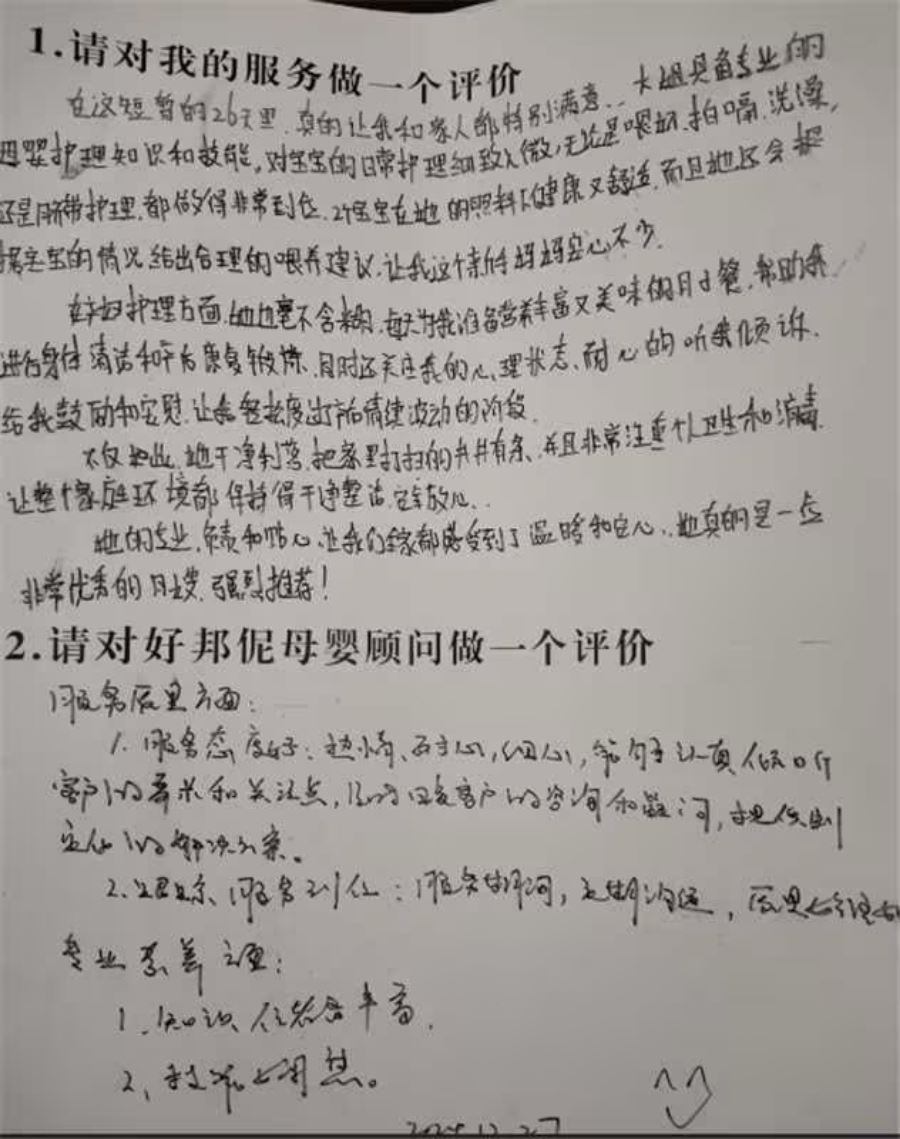 1.请对我的服务做一个评价
在这短暂的26天里,真的让我和家人都特别满意..大姐具备专业的
母婴护理知识和技能,对宝宝的日常护理细致入微,无论是喂奶、拍嗝、洗澡,
还是脐带护理,都做得非常到位.让宝宝在她的照料下健康又舒适,而且她还会根
据宝宝的情况给出合理的喂养建议,让我这个新手妈妈安心不少.
在产妇护理方面,她也毫不含糊,每天为我准备营养丰富又美味的月子餐,帮助我
进行身体清洁和产后康复锻炼.同时还关注我的心理状态,耐心的听我倾诉.
给我鼓励和安慰.让我轻松度过产后情绪波动的阶段.
不仅如此,她干净利落,把家里打扫的井井有条,并且非常注重个人卫生和消毒.
让整个家庭环境都保持得干净整洁,安全放心..
她的专业,负责和贴心,让我们全家都感受到了温暖和安心..她真的是一位
非常优秀的月嫂,强烈推荐!
2.请对好邦伲母婴顾问做一个评价
服务质量方面:
1.服务态度好:热情、耐心,细心,能够认真倾听
客户的需求和关注点,及时回复客户的咨询和疑问,提供
的解决方案。
2.跟踪服务到位:服务期间,定期沟通,
专业素养方面:
1.知识储备丰富.
2、技能娴熟。